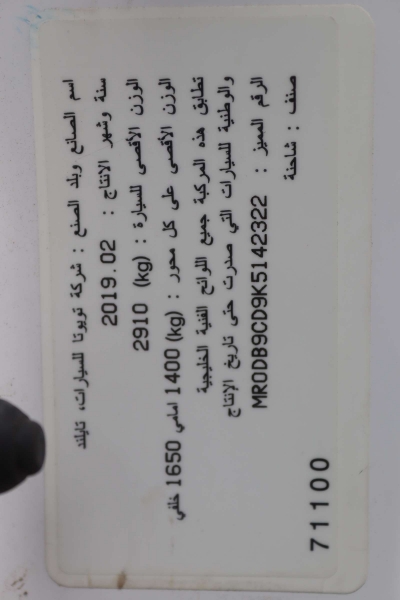 اسم الصانع وبلد الصنع : شركة تويوتا للسيارات، تايلند
سنة وشهر الانتاج : 2019.02
الوزن الأقصى للسيارة : 2910 (kg)
الوزن الأقصى على كل محور : (kg) 1400 امامي 1650 خلفي
تطابق هذه المركبة جميع اللوائح الفنية الخليجية
والوطنية للسيارات التي صدرت حتى تاريخ الإنتاج
الرقم المميز : MR0DB9CD9K5142322
صنف : شاحنة
71100